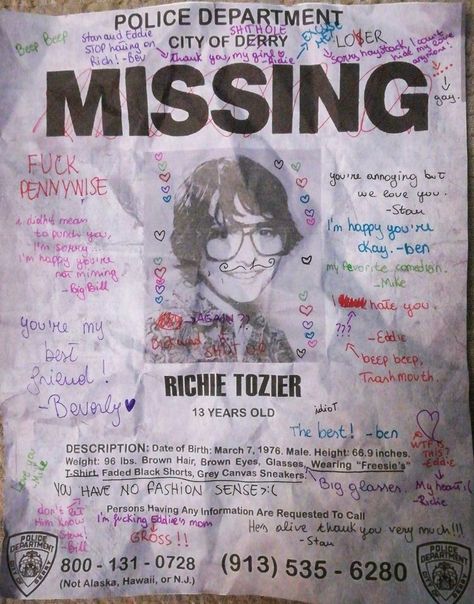 POLICE DEPARTMENT
SHITHOLE
CITY OF DERRY
Beep Beep
Stan and Eddie
STOP hating on
Rich! -Bev
thank you, my girl
-Richie
LOSER
sorry haystack I can't
hide my love
anymore!
gay.
MISSING
FUCK
PENNYWISE
i didn't mean
to punch you,
I'm sorry...
I'm happy you're
not missing
-Big Bill
you're my
best
friend!
-Beverly
you're annoying but
we love you.
-Stan
I'm happy you're
okay. -ben
my favorite comedian.
-Mike
I hate you.
???
-Eddie
beep beep,
Trashmouth.
AGAIN?!
RICHIE TOZIER
13 YEARS OLD
idiot
The best! -ben
WTF IS
THIS??
-Eddie
My heart :(
-Richie
Love ya
-Mike
DESCRIPTION: Date of Birth: March 7, 1976. Male. Height: 66.9 inches.
Weight: 96 lbs. Brown Hair, Brown Eyes, Glasses, Wearing "Freesie's"
T-Shirt, Faded Black Shorts, Grey Canvas Sneakers.
Big glasses.
YOU HAVE NO FASHION SENSE >:(
Persons Having Any Information Are Requested To Call
don't let
Him Know
Stan!
-Bill
I'm fucking Eddie's mom
GROSS!!
He's alive thank you very much!!!
-Stan
POLICE
DEPARTMENT
DERRY
800 - 131 - 0728
(Not Alaska, Hawaii, or N.J.)
(913) 535 - 6280
POLICE
DEPARTMENT
DERRY